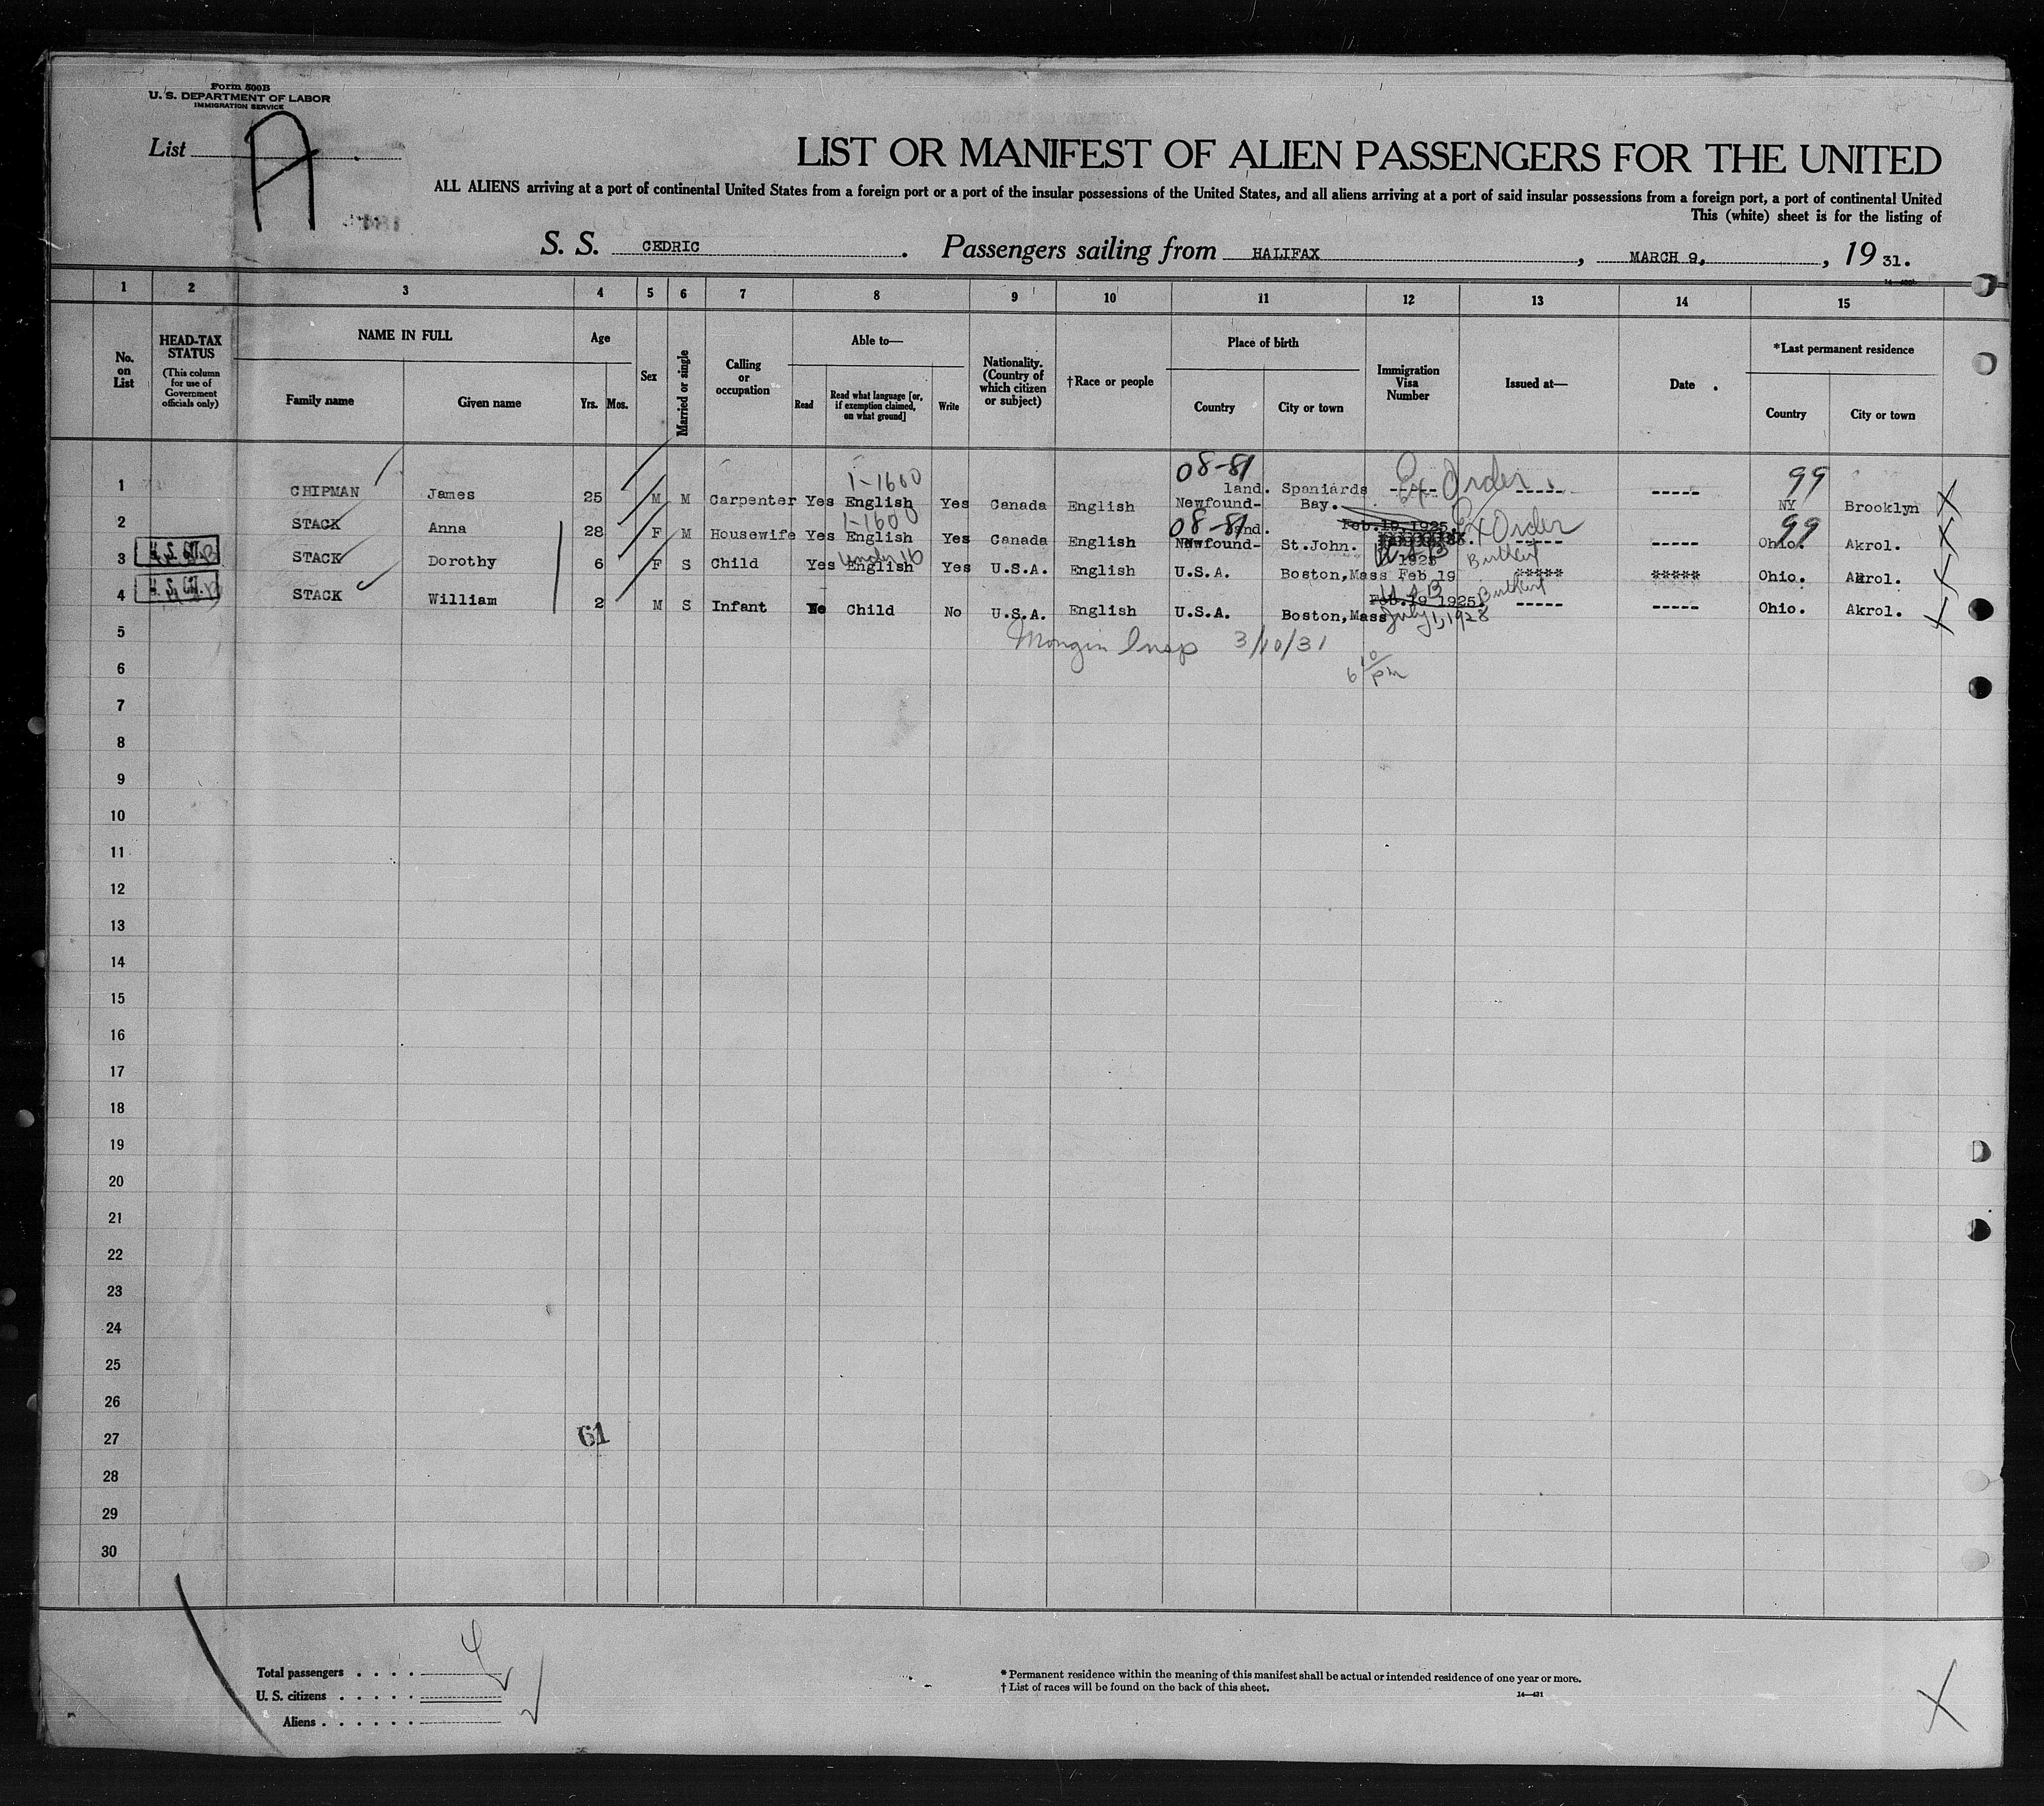 Form 500B
U. S. DEPARTMENT OF LABOR
IMMIGRATION SERVICE
List A
LIST OR MANIFEST OF ALIEN PASSENGERS FOR THE UNITED
ALL ALIENS arriving at a port of continental United States from a foreign port or a port of the insular possessions of the United States, and all aliens arriving at a port of said insular possessions from a foreign port, a port of continental United
This (white) sheet is for the listing of
S. S. CEDRIC. Passengers sailing from HALIFAX, MARCH 9, 1931.
1 2 3 4 5 6 7 8 9 10 11 12 13 14 15
No. on List
HEAD-TAX STATUS (This column for use of Government officials only)
NAME IN FULL
Family name
Given name
Age
Yrs. Mos.
Sex
Married or single
Calling or occupation
Able to—
Read
Read what language [or, if exemption claimed, on what ground]
Write
Nationality. (Country of which citizen or subject)
†Race or people
Place of birth
Country
City or town
Immigration Visa Number
Issued at—
Date
*Last permanent residence
Country
City or town
08-81 99
1-1600 Ex Order
1 CHIPMAN James 25 M M Carpenter Yes English Yes Canada English Newfound-land. Spaniards Bay. ----- ----- ----- NY Brooklyn X
1-1600 08-81 Feb.19,1925. Ex Order 99
2 STACK Anna 28 F M Housewife Yes English Yes Canada English Newfound-land. St.John. ----- ----- Ohio. Akrol. X
Under 16 U S B Birth Cert
3 U.S. Cit. STACK Dorothy 6 F S Child Yes English Yes U.S.A. English U.S.A. Boston,Mass Feb 19 1925 ***** ***** Ohio. Akrol. X
U S B Birth Cert
4 U.S. Cit. STACK William 2 M S Infant No Child No U.S.A. English U.S.A. Boston,Mass Feb.19 1925. July 1, 1928 ----- ----- Ohio. Akrol. X
5
Mongin Insp 3/10/31
6 10/pm
6
7
8
9
10
11
12
13
14
15
16
17
18
19
20
21
22
23
24
25
26
27 61
28
29
30
Total passengers . . . . 4
U. S. citizens . . . . .
Aliens . . . . . .
* Permanent residence within the meaning of this manifest shall be actual or intended residence of one year or more.
† List of races will be found on the back of this sheet.
14—431
X